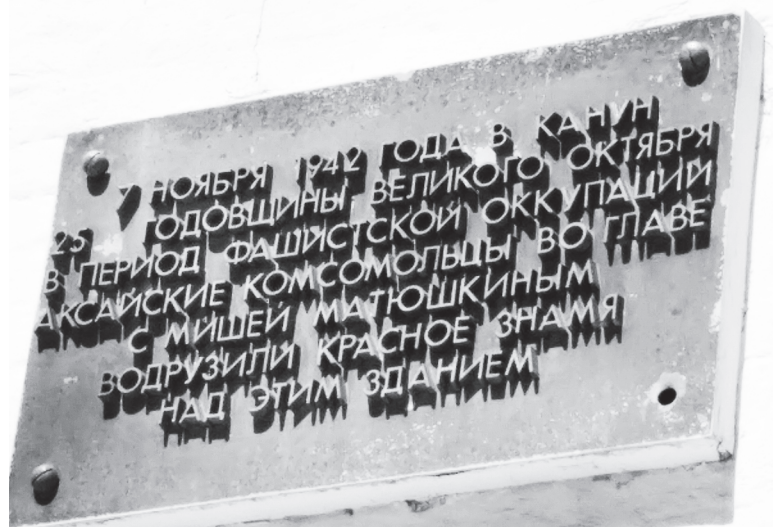 7 НОЯБРЯ 1942 ГОДА В КАНУН
25 ГОДОВЩИНЫ ВЕЛИКОГО ОКТЯБРЯ
В ПЕРИОД ФАШИСТСКОЙ ОККУПАЦИИ
АКСАЙСКИЕ КОМСОМОЛЬЦЫ ВО ГЛАВЕ
С МИШЕЙ МАТЮШКИНЫМ
ВОДРУЗИЛИ КРАСНОЕ ЗНАМЯ
НАД ЭТИМ ЗДАНИЕМ